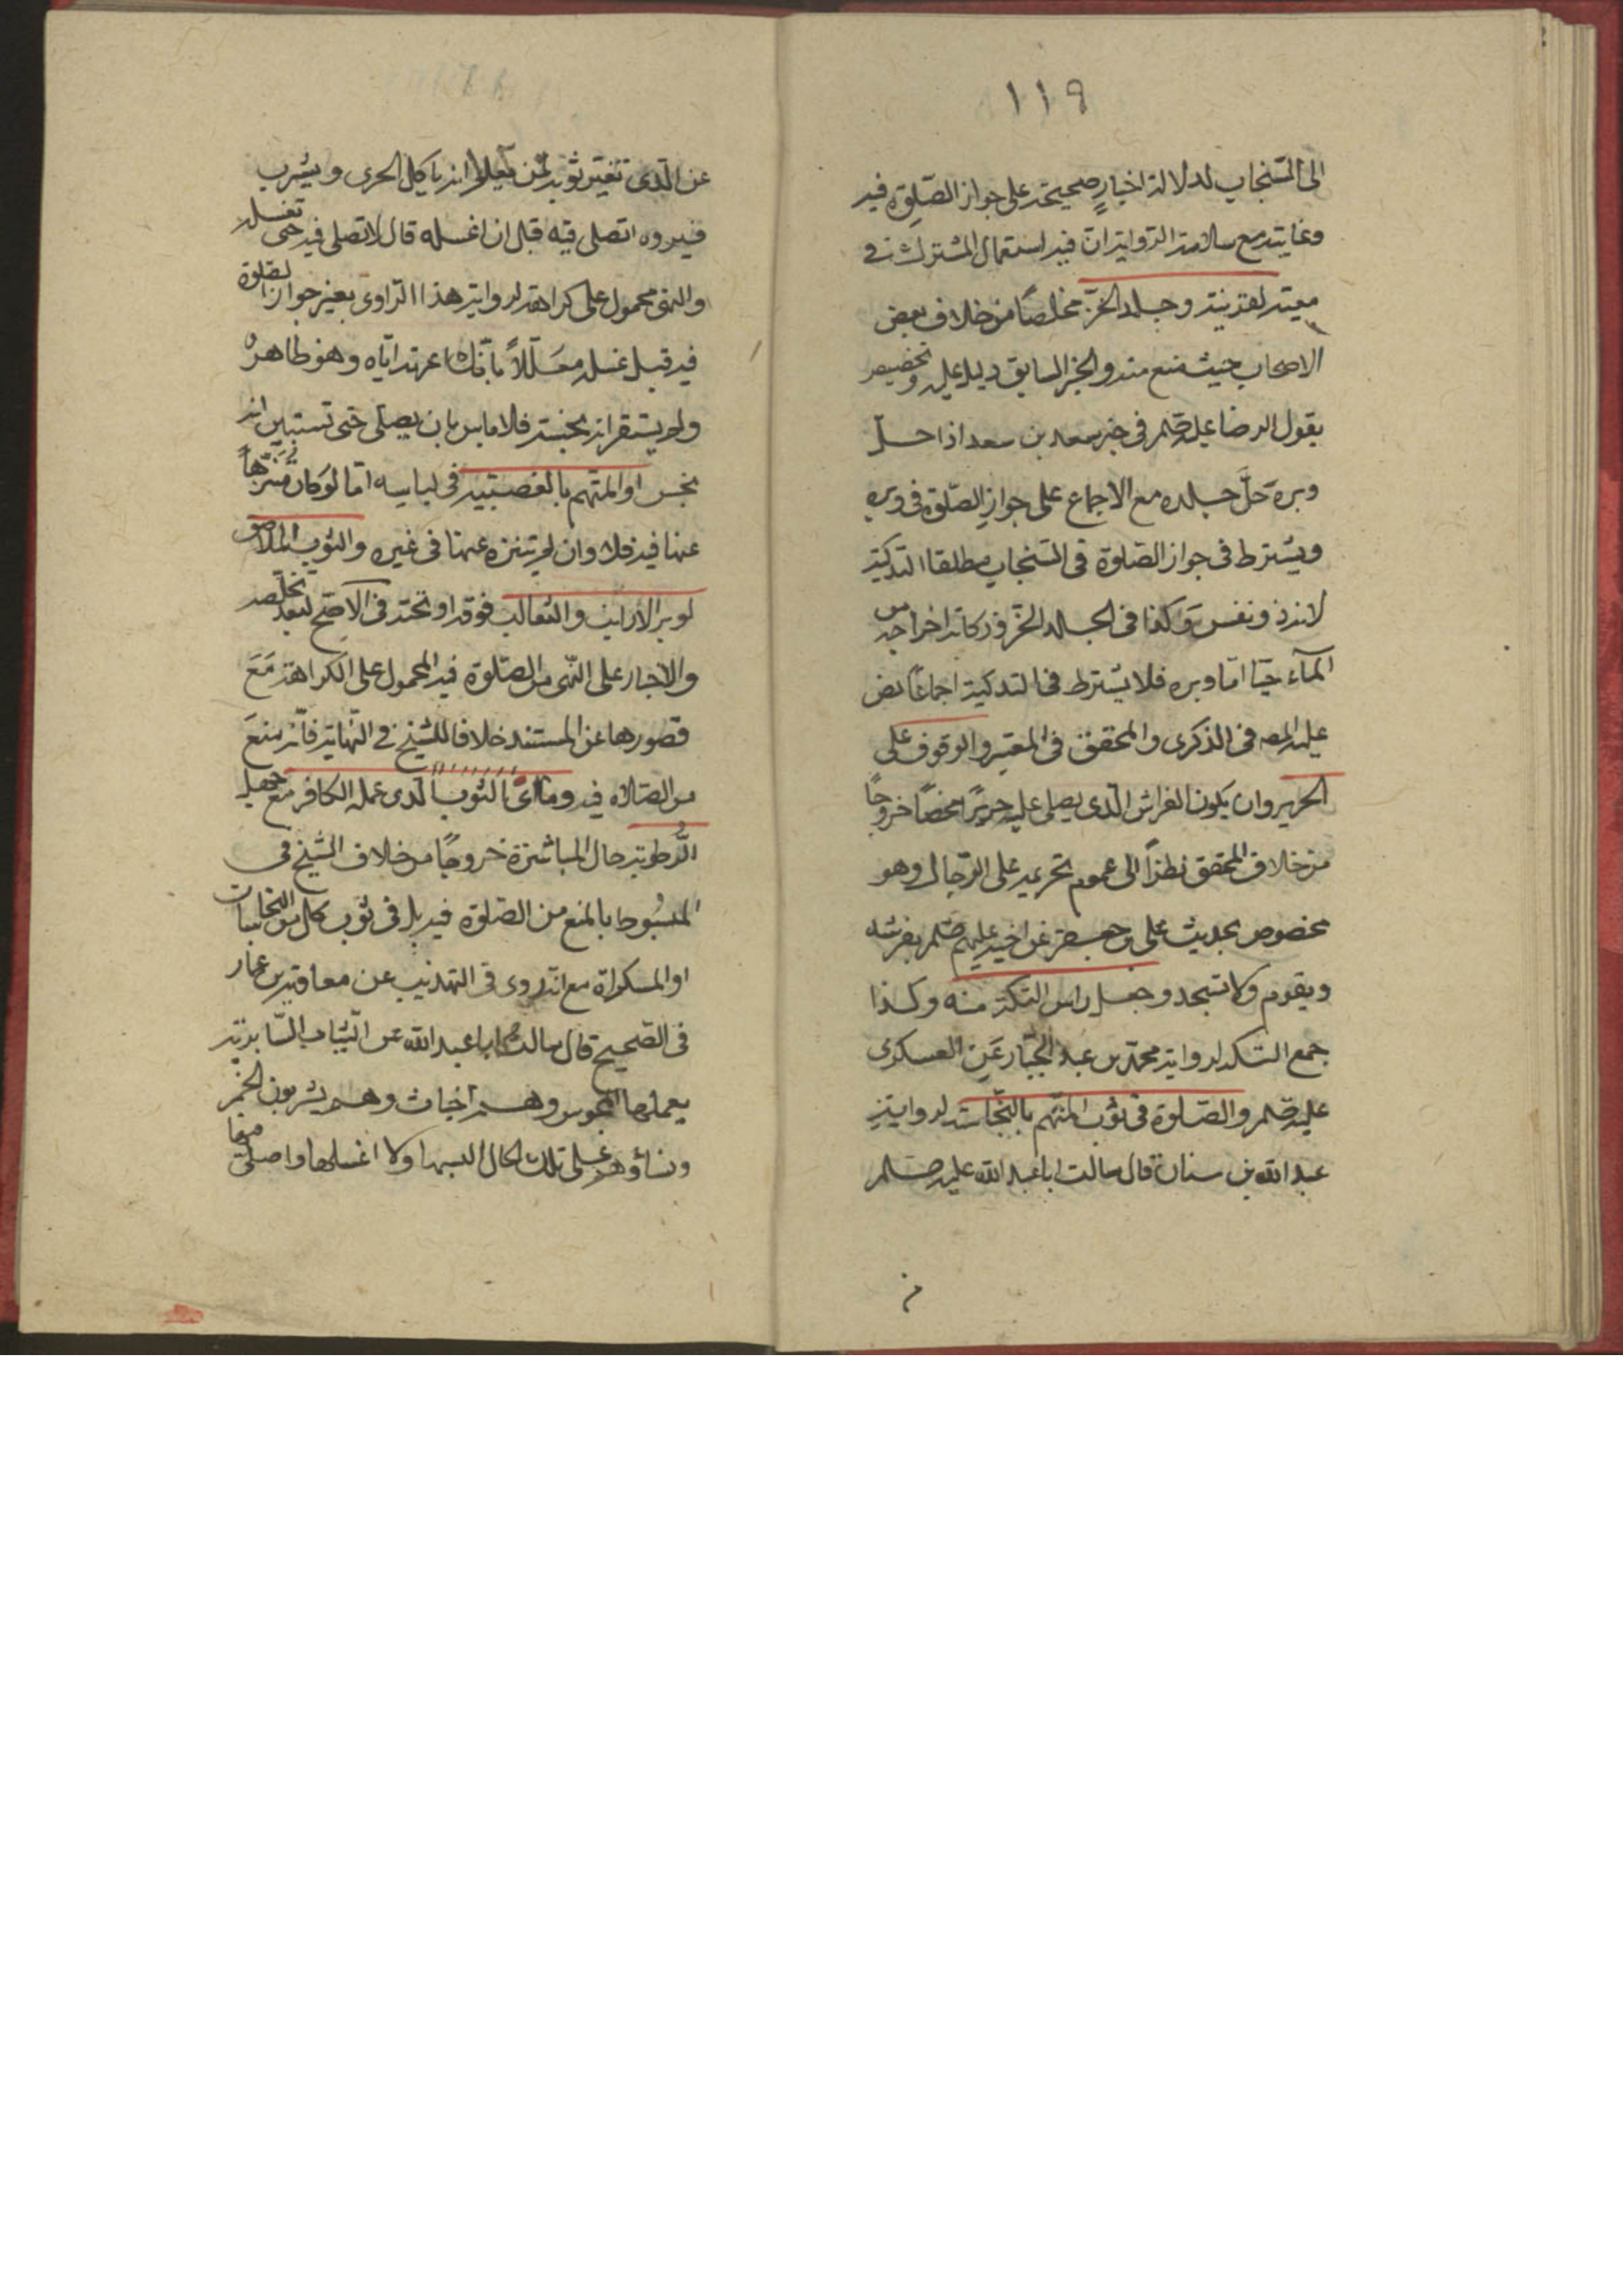 ١١٩
الى السنجاب لدلالة اخبارٍ صحيحة على جواز الصّلوة فيه
وغايته مع سلامة الرواية ان فيه استعمال المشترك في
معنييه لقرينة وجلد الخزّ مخلصًا من خلاف بعض
الاصحاب حيث منع منه والخبر السابق دليل عليه وتخصيص
بقول الرضا عليه صلم في خبر سعد بن سعد اذا حلّ
وبره حلّ جلده مع الاجماع على جواز الصّلوة في وبره
ويشترط في جواز الصّلوة في السنجاب مطلقا التذكية
لانه ذو نفس وكذا في الجلد الخزّ وذكاته اخراجه من
المآء حيّا امّا وبره فلا يشترط فيه التذكية اجماعًا نص
عليه المصه في الذكرى والمحقق في المعتبر والوقوف على
الحرير وان يكون الفراش الّذي يصلى عليه حريرًا محضًا خروجًا
من خلاف المحقق نظرًا الى عموم تحريمه على الرّجال وهو
مخصوص بحديث على بن جعفر عن اخيه عليهم صلم بفرشه
ويقوم ولا تسجد وجعل راس التكة منه وكذا
جمع التكة لرواية محمّد بن عبد الجبّار عَنِ العسكرى
عليه صلم والصّلوة في ثوب المتّهم بالنّجاسة لرواية
عبد الله بن سنان قال سالت ابا عبد الله عليه صلم
عن الّذى تغير ثوبه لمن يعلم انه ياكل الجرى ويشرب
فيروه اتصلى فيه قبل ان اغسله قال لا تصلى فيه حتى تغسله
والنهى محمول على كراهة لرواية هذا الرّاوى بعينه جواز الصّلوة
فيه قبل غسله معَلّلاً بانّك اعرته ايّاه وهو طاهر
ولم يستقر انه نجسه فلا باس بان يصلى حتى تستبين انه
نجس او المتهم بالغصبية في لباسه امّا لو كان متنزهاً
عنها فيه فلا وان لم يتنزه عنها في غيره والثوب الملاصق
لوبر الارانب والثعالب فوقه او تحته في الاصّح لبعد تخلّصه
والاخبار على النّهى من الصّلوة فيه المحمول على الكراهة مَعَ
قصورها عن المستند خلافا للشيخ في النّهاية فانّه منعَ
من الصّلاه فيه وما اى بالثوب الّذى عمله الكافر مع جهل
الرّطوبة حال المباشرة خروجًا من خلاف الشيخ في
المبسُوط بالمنع من الصّلوة فيه بل في ثوب كل من النجاسات
او المسكراة مع انّه روى في التهذيب عن معاوية بن عمار
في الصّحيح قال سالت ابا عبد الله عن الثّياب السّابرية
يعملها المجوس وهم اخباث وهم يشربون الخمر
ونساؤهم على تلك الحال البسها ولا اغسلها واصلّى فيها